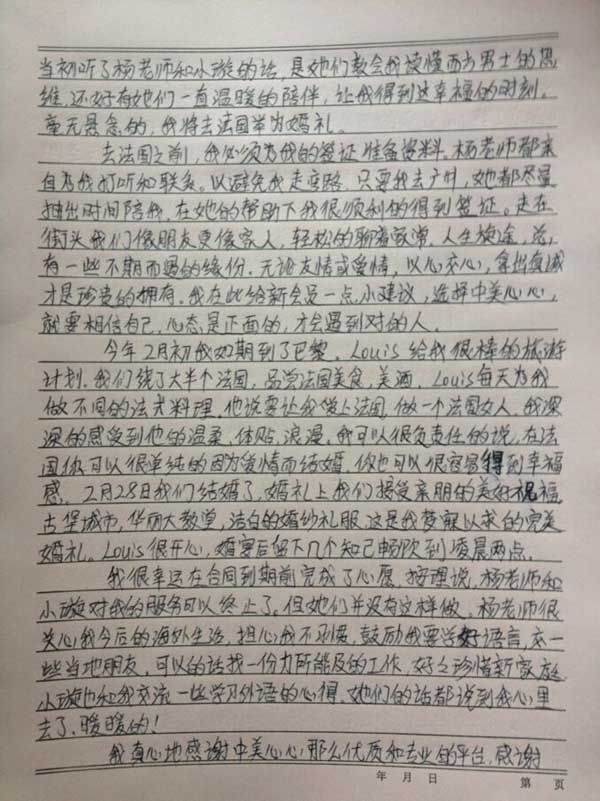 当初听了杨老师和小璇的话，是她们教会我读懂西方男士的思
维，还好有她们一直温暖的陪伴，让我得到这幸福的时刻。
毫无悬念的，我将去法国举办婚礼。
去法国之前，我必须为我的签证准备资料。杨老师都亲
自为我打听和联系。以避免我走弯路，只要我去广州，她都尽量
抽出时间陪我，在她的帮助下我很顺利的得到签证。走在
街头我们像朋友更像家人，轻松的聊着家常，人生旅途，总
有一些不期而遇的缘份。无论友情或爱情，以心交心，拿出真诚
才是珍贵的拥有。我在此给新会员一点小建议，选择中美心心，
就要相信自己，心态是正面的，才会遇到对的人。
今年2月初我如期到了巴黎。Louis 给我很棒的旅游
计划。我们绕了大半个法国，品尝法国美食，美酒。Louis每天为我
做不同的法式料理，他说要让我爱上法国，做一个法国女人，我深
深的感受到他的温柔，体贴，浪漫，我可以很负责任的说，在法
国你可以很单纯的因为爱情而结婚，你也可以很容易得到幸福
感。2月28日我们结婚了，婚礼上我们接受亲朋的美好祝福，
古堡城市，华丽大教堂，洁白的婚纱礼服，这是我梦寐以求的完美
婚礼。Louis很开心，婚宴后留下几个知己畅饮到凌晨两点。
我很幸运在合同到期前完成了心愿，按理说，杨老师和
小璇对我的服务可以终止了。但她们并没有这样做。杨老师很
关心我今后的海外生活，担心我不习惯，鼓励我要学好语言，交一
些当地朋友，可以的话找一份力所能及的工作，好好珍惜新家庭。
小璇也和我交流一些学习外语的心得。她们的话都说到我心里
去了，暖暖的！
我真心地感谢中美心心那么优质和专业的平台，感谢
年 月 日 第 页